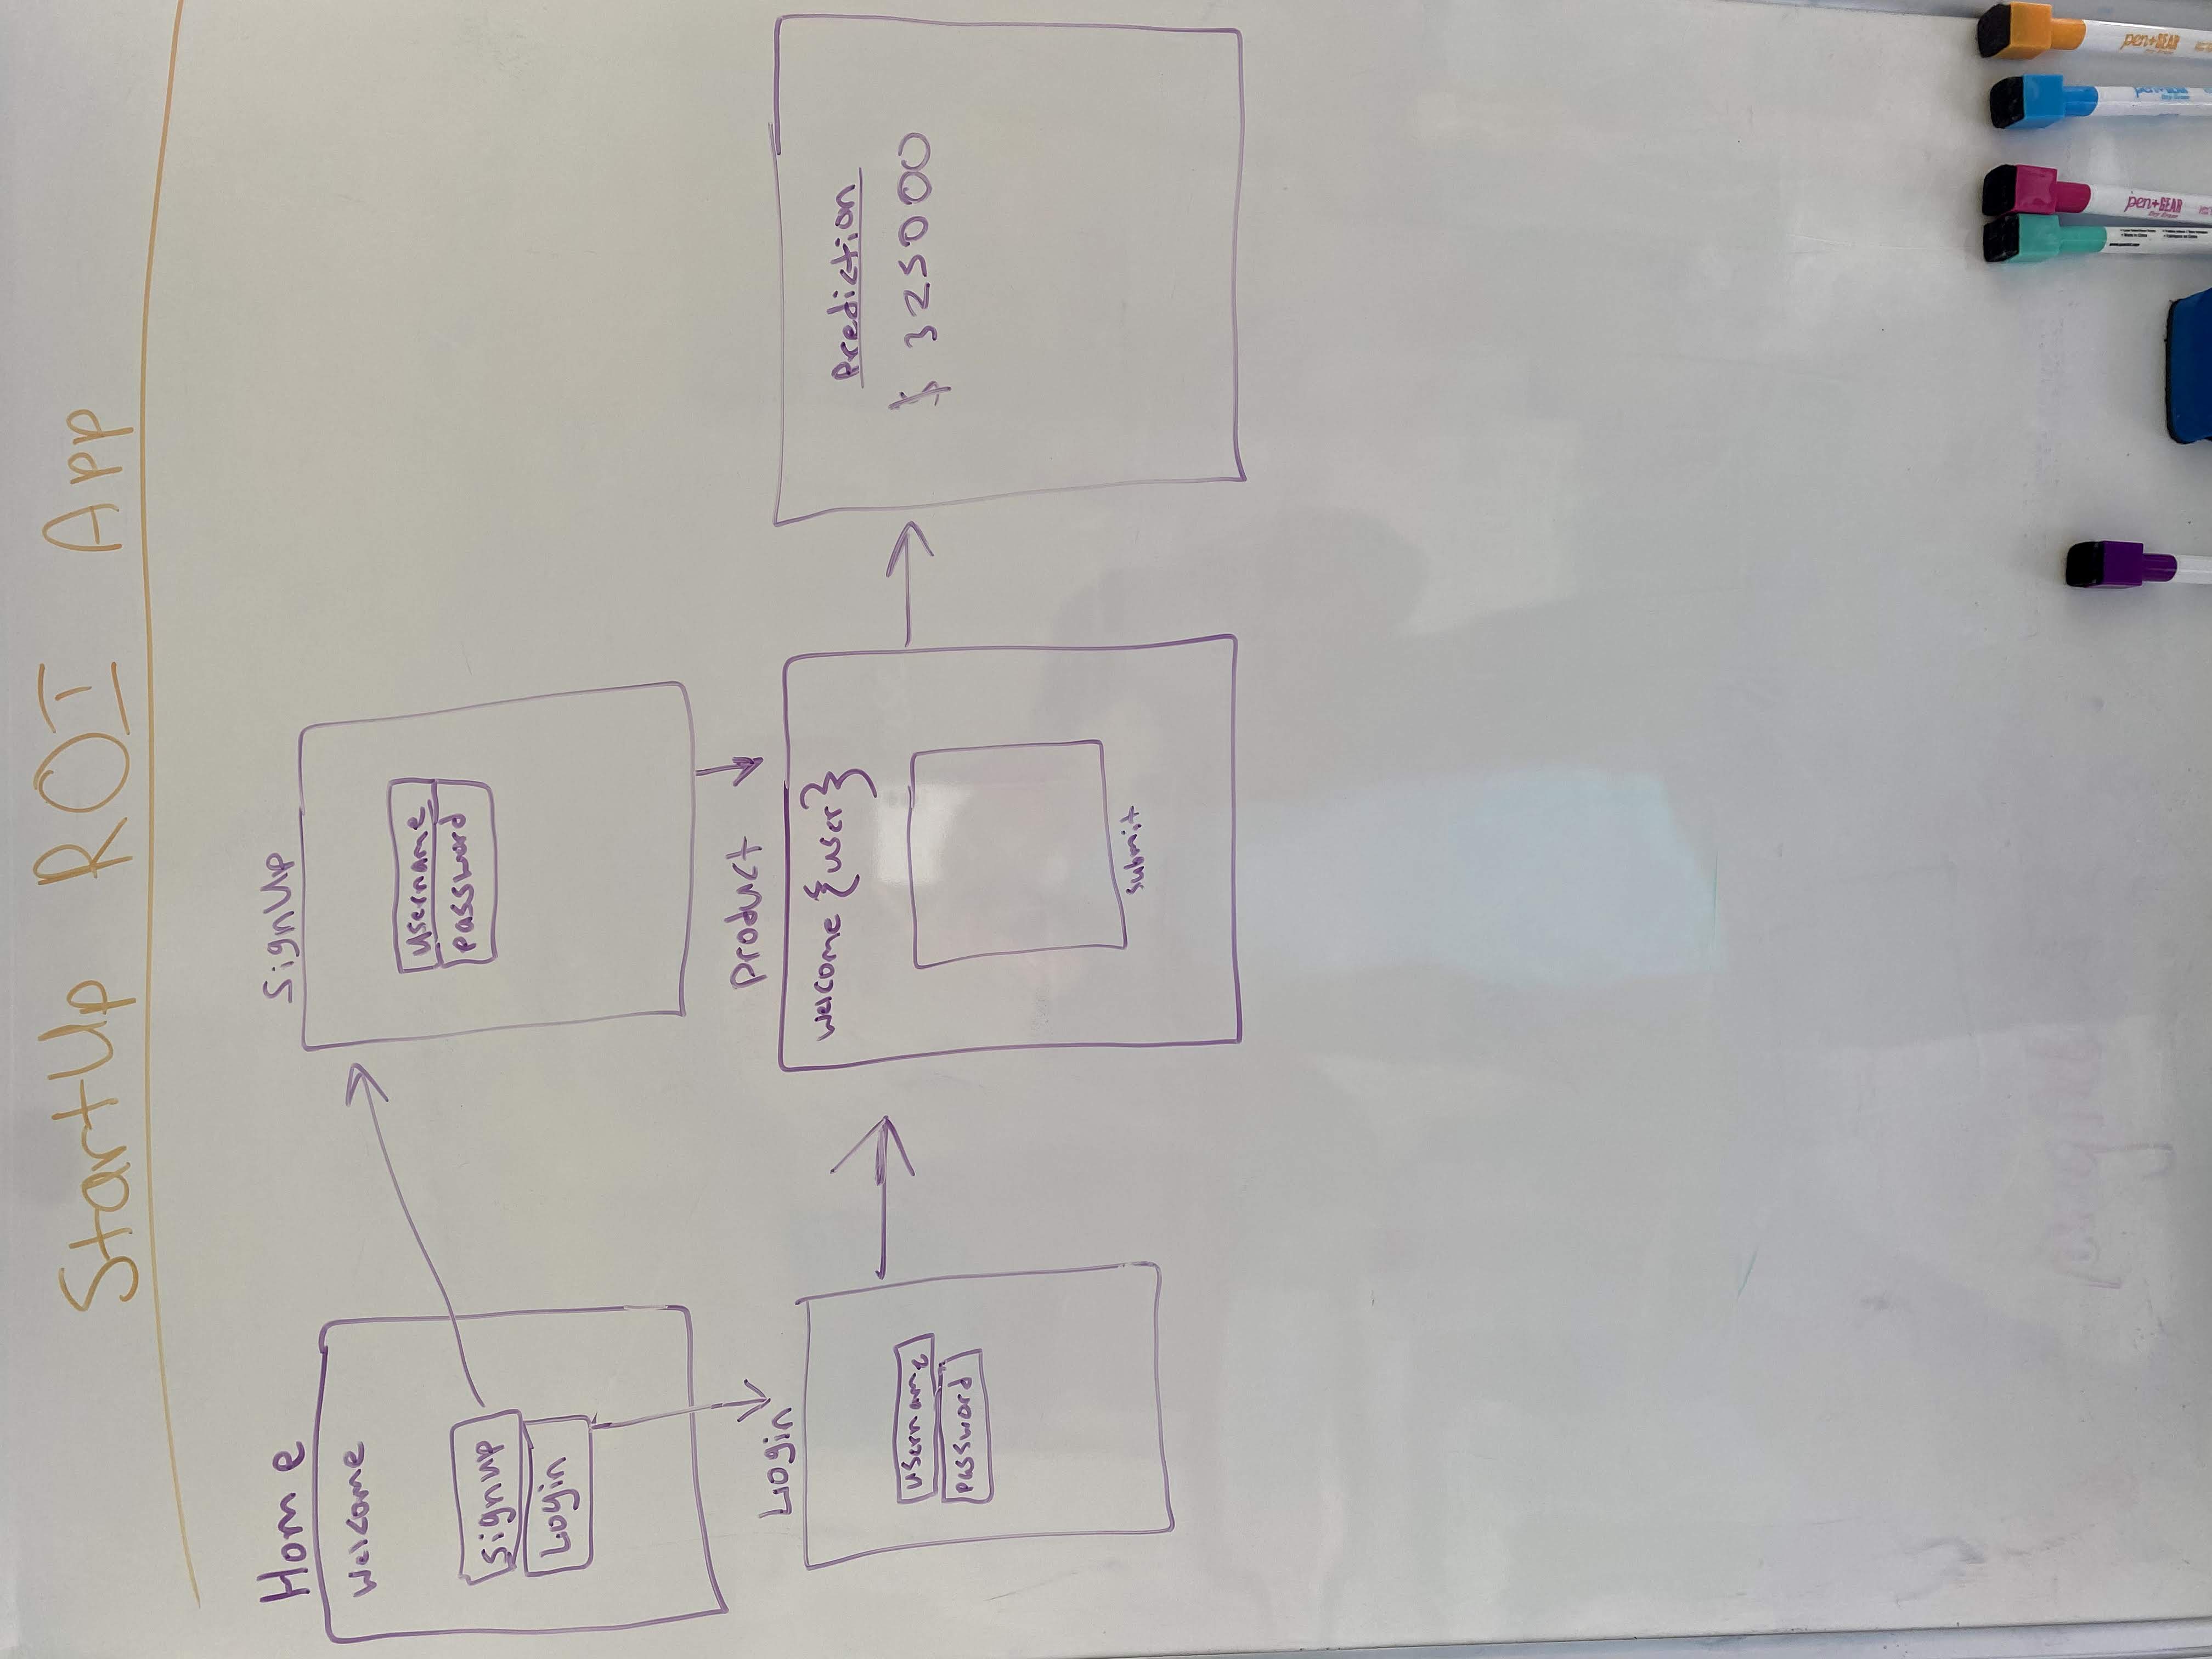 StartUp ROI App
Home
Welcome
signup
Login
SignUp
username
password
Login
username
password
product
welcome {user}
submit
Prediction
$ 325000
pen+GEAR
pen+GEAR